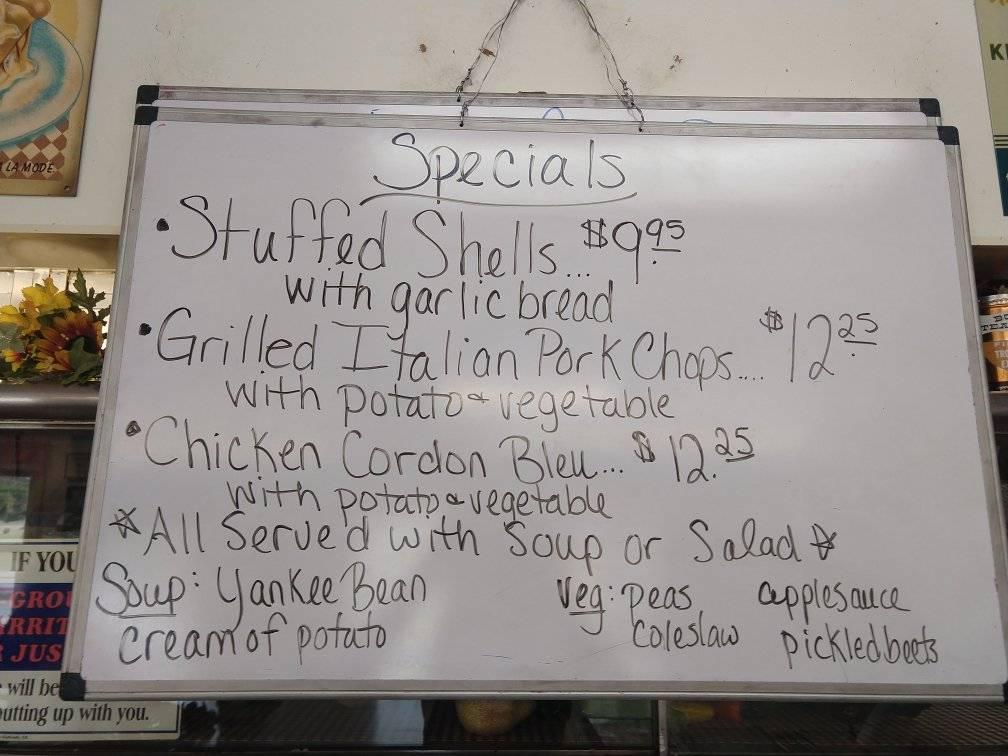 Specials
• Stuffed Shells... $9.95
with garlic bread
• Grilled Italian Pork Chops.... $12.25
with potato & vegetable
• Chicken Cordon Bleu... $12.25
with potato & vegetable
☆ All Served with Soup or Salad ☆
Soup: Yankee Bean
cream of potato
Veg: peas applesauce
coleslaw pickled beets
A LA MODE
IF YOU
GROU
RRIT
JUS
will be
putting up with you.